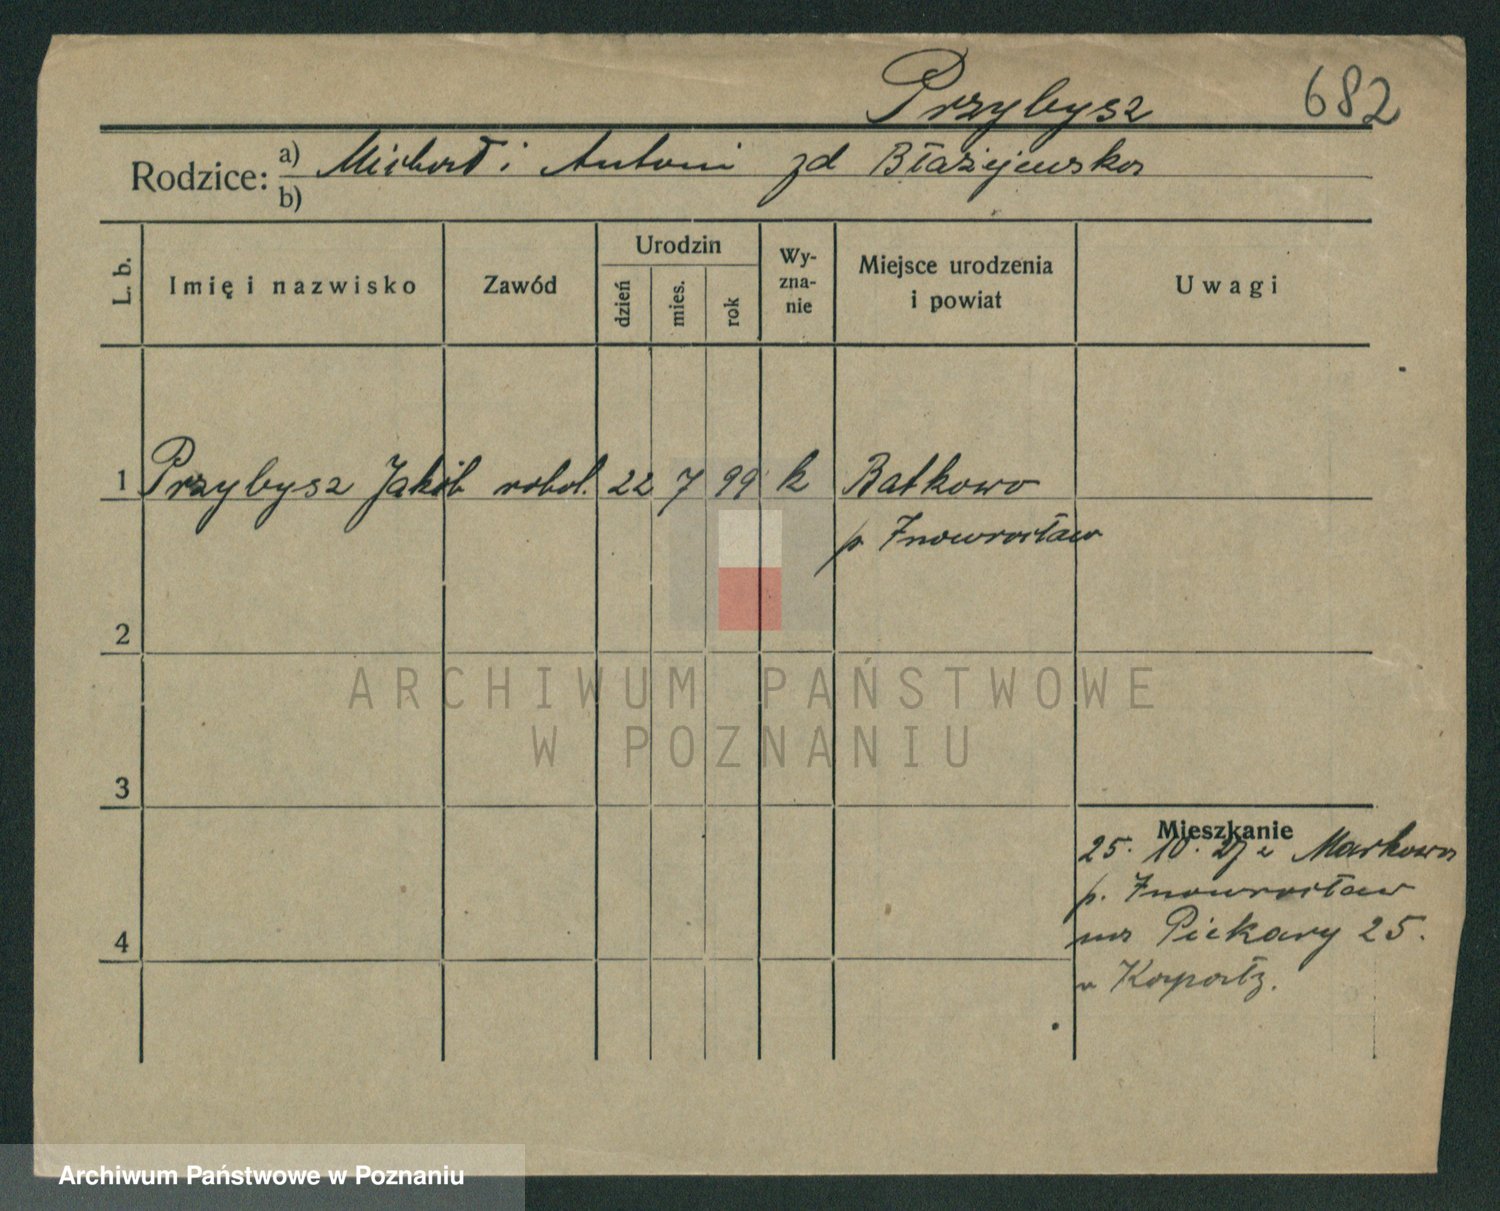 Przybysz 682
Rodzice: a) Michał i Antoni zd Błażejewska
b)
L. b.
Imię i nazwisko
Zawód
Urodzin
dzień
mies.
rok
Wy-
zna-
nie
Miejsce urodzenia
i powiat
Uwagi
1 Przybysz Jakób robot. 22 7 99 k Batkowo
p Inowrocław
2
ARCHIWUM PAŃSTWOWE
W POZNANIU
3
Mieszkanie
25. 10. 27 z Markowa
p. Inowrocław
na Piekary 25.
4
Archiwum Państwowe w Poznaniu